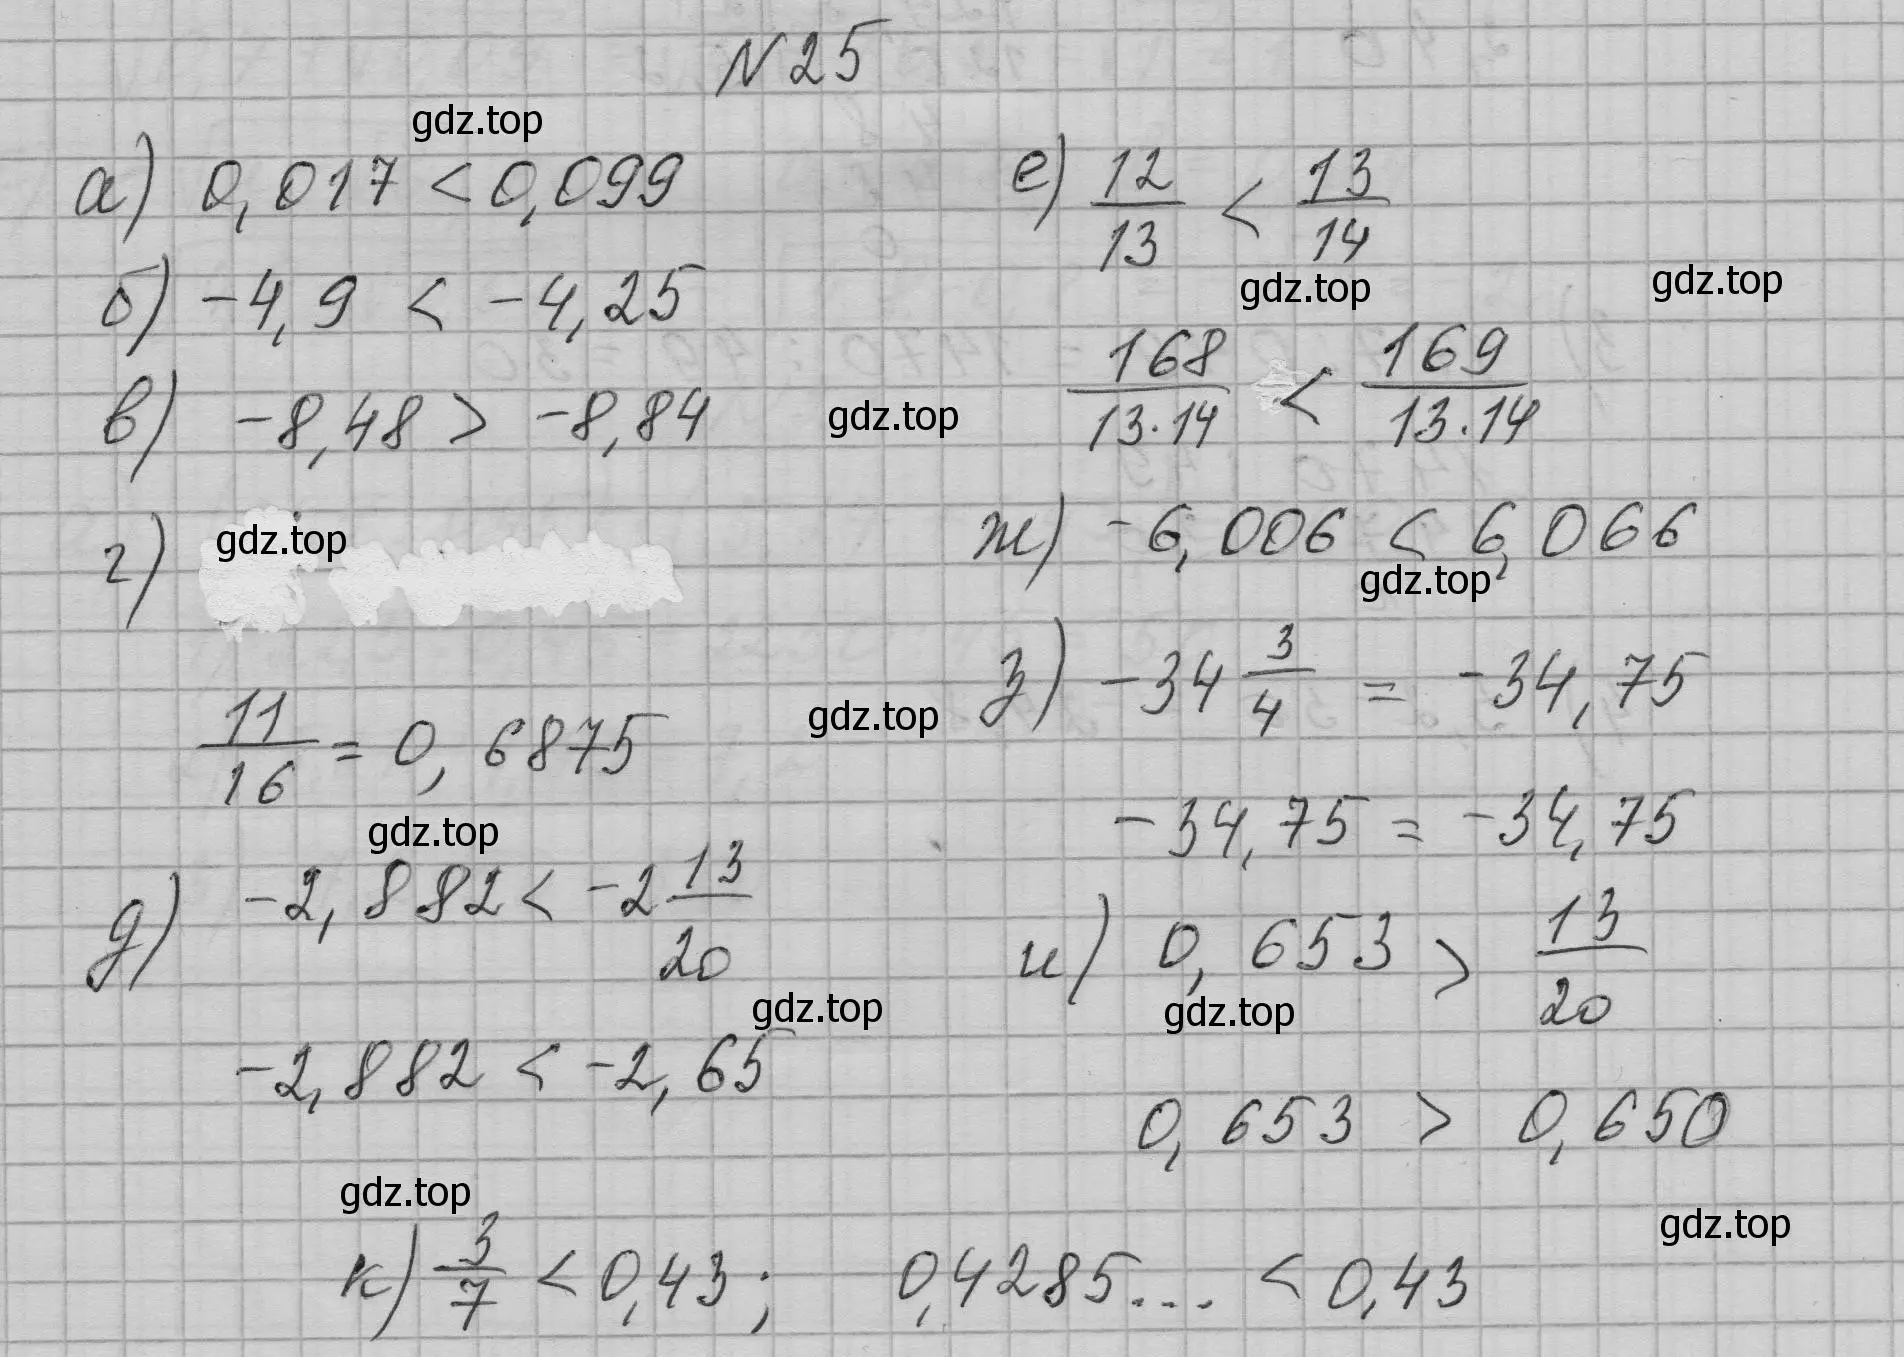 N25
а) 0,017 < 0,099
б) -4,9 < -4,25
в) -8,48 > -8,84
г)
11/16 = 0,6875
д) -2,882 < -2 13/20
-2,882 < -2,65
е) 12/13 < 13/14
168/13·14 < 169/13·14
ж) -6,006 < 6,066
з) -34 3/4 = -34,75
-34,75 = -34,75
и) 0,653 > 13/20
0,653 > 0,650
к) 3/7 < 0,43; 0,4285... < 0,43
gdz.top
gdz.top
gdz.top
gdz.top
gdz.top
gdz.top
gdz.top
gdz.top
gdz.top
gdz.top
gdz.top
gdz.top